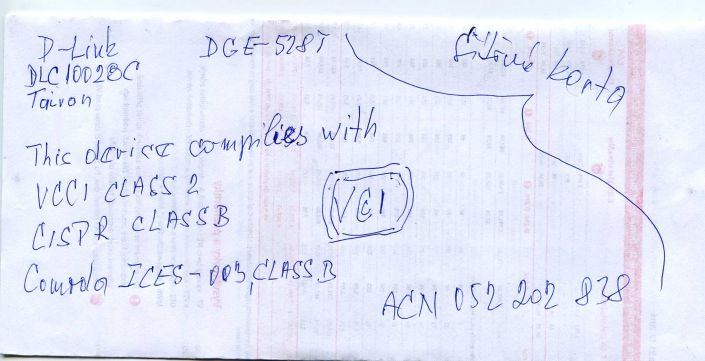 D-Link DGE-528T
Síťová karta
DLC1002BC
Taiwan
This device complies with
VCCI CLASS 2
CISPR CLASS B
VCCI
Canada ICES-003, CLASS B
ACN 052 202 838